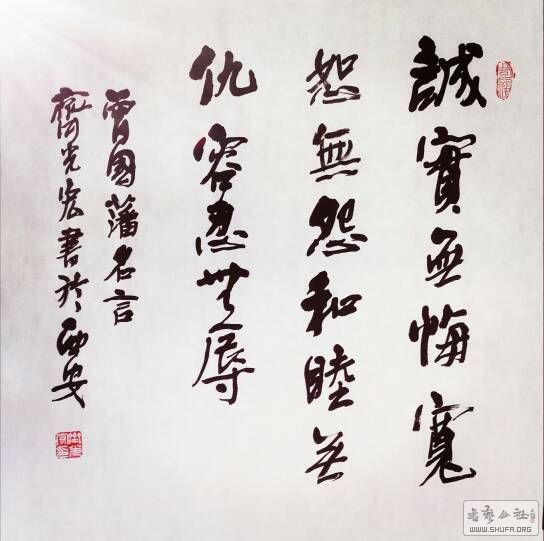 誠實無悔寬
恕無怨和睦無
仇容忍無辱
曾國藩名言
齊光宏書於西安
書藝公社
WWW.SHUFA.ORG